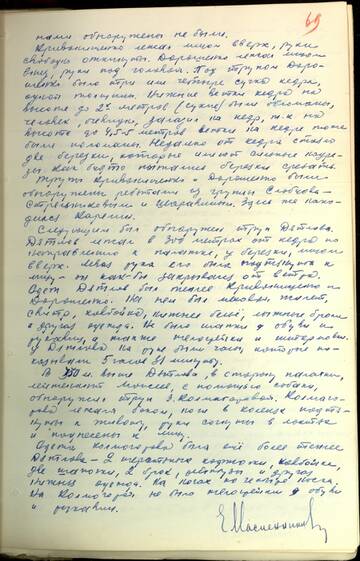 69
нами обнаружены не были.
Кривонищенко лежал лицом вверх, руки
свободно откинуты. Дорошенко лежал лицом
вниз, руки под головой. Под трупом Доро-
шенко было три или четыре сучка кедра,
одной толщины. Нижние ветки кедра на
высоте до 2х метров (сухие) были обломаны,
человек, очевидно, залазил на кедр, т.к. на
высоте до 4,5-5 метров ветки на кедре тоже
были поломаны. Недалеко от кедра стояли
две березки, которые имеют надре-
зы как будто пытались березки срезать.
Трупы Кривонищенко и Дорошенко были
обнаружены ребятами из группы Слобцова -
и Шаравиным. Здесь же нахо-
дился Карелин.
Следующим был обнаружен труп Дятлова.
Дятлов лежал в 300 метрах от кедра по
направлению к палатке, у березки, лицом
вверх. Левая рука его была подтянута к
лицу - он как бы закрывался от ветра.
Одет Дятлов был теплее Кривонищенко и
Дорошенко. На нем был меховой жилет,
свитр, ковбойка, нижнее белье, лыжные брюки
и другая одежда. Не было шапки и обуви и
рукавиц, а также и штормовки.
У Дятлова на руке были часы, которые по-
казывали 5 часов 31 минуту.
В выше Дятлова, в сторону палатки,
лейтенант Моисеев, с помощью собаки,
обнаружил труп З. Колмогоровой. Колмого-
рова лежала боком, ноги в коленях подтя-
нуты к животу, руки согнуты в локтях
и к нему.
Одета Колмогорова была ещё более теплее
Дятлова - 2 шерстяных ковбойка,
две шапочки, 2 брюк, и другая
нижняя одежда. На ногах носка.
На Колмогоровой не было обуви
и рукавиц.
Е Масленников